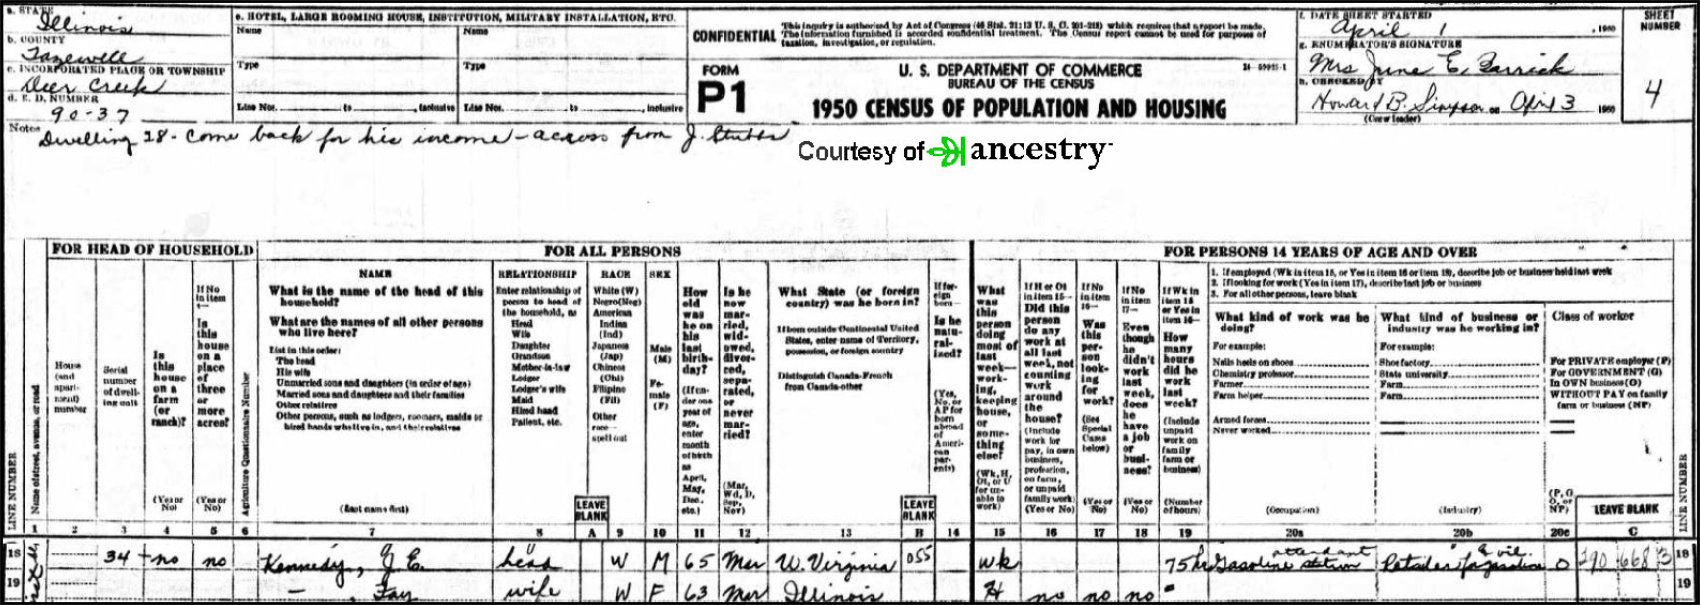 a. STATE
Illinois
b. COUNTY
Tazewell
c. INCORPORATED PLACE OR TOWNSHIP
Deer Creek
d. E. D. NUMBER
90-37
e. HOTEL, LARGE ROOMING HOUSE, INSTITUTION, MILITARY INSTALLATION, ETC.
Name Name
Type Type
Line Nos. to , inclusive Line Nos. to , inclusive
CONFIDENTIAL
This inquiry is authorized by Act of Congress (46 Stat. 21; 13 U. S. C. 201-218) which requires that a report be made.
The information furnished is accorded confidential treatment. The Census report cannot be used for purposes of
taxation, investigation, or regulation.
FORM
P1
U. S. DEPARTMENT OF COMMERCE
BUREAU OF THE CENSUS
1950 CENSUS OF POPULATION AND HOUSING
f. DATE SHEET STARTED
April 1 , 1950
g. ENUMERATOR'S SIGNATURE
Mrs June E. Barrick
h. CHECKED BY
Howard B. Simpson on April 3 1950
(Crew leader)
SHEET
NUMBER
4
Notes
Dwelling 28 - Come back for his income - across from J. Stubbs
Courtesy of ancestry
FOR HEAD OF HOUSEHOLD
LINE NUMBER
Name of street, avenue, or road
House (and apartment) number
Serial number of dwelling unit
Is this house on a farm (or ranch)?
(Yes or No)
If No in item 4—
Is this house on a place of three or more acres?
(Yes or No)
Agriculture Questionnaire Number
FOR ALL PERSONS
NAME
What is the name of the head of this
household?
What are the names of all other persons
who live here?
List in this order:
The head
His wife
Unmarried sons and daughters (in order of age)
Married sons and daughters and their families
Other relatives
Other persons, such as lodgers, roomers, maids or
hired hands who live in, and their relatives
(Last name first)
RELATIONSHIP
Enter relationship of
person to head of
the household, as
Head
Wife
Daughter
Grandson
Mother-in-law
Lodger
Lodger's wife
Maid
Hired hand
Patient, etc.
LEAVE
BLANK
RACE
White (W)
Negro (Neg)
American
Indian
(Ind)
Japanese
(Jap)
Chinese
(Chi)
Filipino
(Fil)
Other
race—
spell out
SEX
Male
(M)
Fe-
male
(F)
How
old
was
he on
his
last
birth-
day?
(If un-
der one
year of
age,
enter
month
of birth
as
April,
May,
Dec.
etc.)
Is he
now
mar-
ried,
wid-
owed,
divor-
ced,
sepa-
rated,
or
never
mar-
ried?
(Mar,
Wd, D,
Sep,
Nev)
What State (or foreign
country) was he born in?
If born outside Continental United
States, enter name of Territory,
possession, or foreign country
Distinguish Canada-French
from Canada-other
LEAVE
BLANK
If for-
eign
born—
Is he
natu-
ral-
ized?
(Yes,
No, or
AP for
born
abroad
of
Ameri-
can
par-
ents)
FOR PERSONS 14 YEARS OF AGE AND OVER
What
was
this
person
doing
most of
last
week—
work-
ing,
keeping
house,
or
some-
thing
else?
(Wk, H,
Ot, or U
for un-
able to
work)
If H or Ot
in item 15—
Did this
person
do any
work at
all last
week, not
counting
work
around
the
house?
(Include
work for
pay, in own
business,
profession,
on farm,
or unpaid
family work)
(Yes or No)
If No
in item
16—
Was
this
per-
son
look-
ing
for
work?
(See
Special
Cases
below)
(Yes or
No)
If No
in item
17—
Even
though
he
didn't
work
last
week,
does
he
have
a job
or
busi-
ness?
(Yes or
No)
If Wk in
item 15
or Yes in
item 16—
How
many
hours
did he
work
last
week?
(Include
unpaid
work on
family
farm or
business)
(Number
of hours)
1. If employed (Wk in item 15, or Yes in item 16 or item 18), describe job or business held last week
2. If looking for work (Yes in item 17), describe last job or business
3. For all other persons, leave blank
What kind of work was he
doing?
For example:
Nails heels on shoes
Chemistry professor
Farmer
Farm helper
Armed forces
Never worked
(Occupation)
What kind of business or
industry was he working in?
For example:
Shoe factory
State university
Farm
Farm
(Industry)
Class of worker
For PRIVATE employer (P)
For GOVERNMENT (G)
In OWN business (O)
WITHOUT PAY on family
farm or business (NP)
(P, G,
O, or
NP)
LEAVE BLANK
LINE NUMBER
1 2 3 4 5 6 7 8 A 9 10 11 12 13 B 14 15 16 17 18 19 20a 20b 20c C
18 34 no no Kennedy, J. E. head W M 65 Mar W. Virginia 055 wk 75 hr Gasoline station attendant Retailer for gasoline & oil O 290 668 3 18
19 — , Fay wife W F 63 Mar Illinois H no no no 19